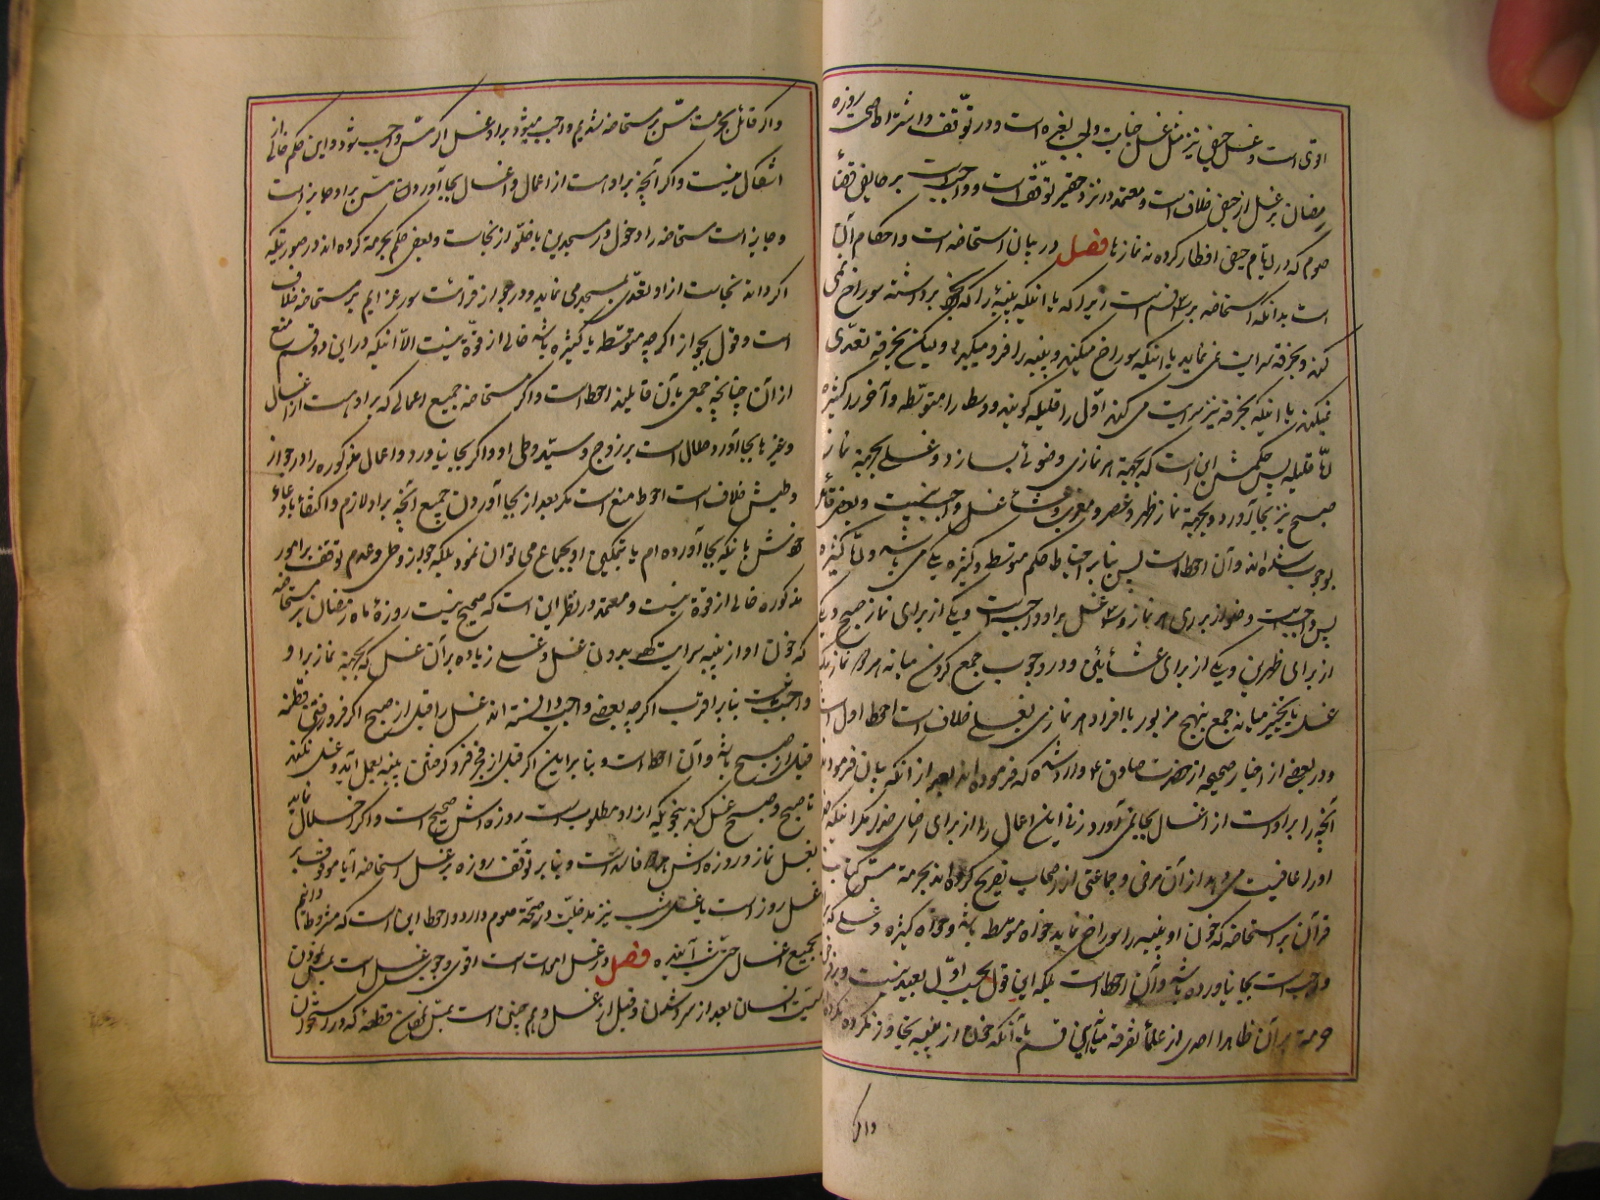 اقوی است و غسل حیض نیز مثل غسل جنابت واجب لغیره است و در توقف و اشتراط صحت روزه
رمضان بر غسل از حیض خلاف است و معتمد در نزد حقیر توقف است و واجب است بر حایض قضاء
صوم که در ایام حیض افطار کرده نه نماز با فصل در بیان استحاضه است و احکام آن
است بدانکه استحاضه بر ۳ قسم است زیرا که یا اینکه پنبه را که برداشته سوراخ نمی
کند و بخرقه سرایت نمی نماید یا اینکه سوراخ میکند و پنبه را فرو میگیرد ولیکن بخرقه تعدی
نمیکند یا اینکه بخرقه نیز سرایت می کند اول را قلیله گویند و وسط را متوسطه و آخر را کثیره
امّا قلیله پس حکمش این است که بجهة هر نمازی وضوئی بسازد و غسلی بجهة نماز
صبح نیز بجا آورد و بجهة نماز ظهر و عصر و مغرب و عشاء غسل واجب نیست و بعضی قائل
بوجوب شده اند و آن احوط است پس بنا بر احتیاط حکم متوسطه و کثیره یکی می باشد و امّا کثیره
پس واجبست وضو از برای هر نماز و ۳ غسل بر او واجبست یکی از برای نماز صبح و یکی
از برای ظهرین و یکی از برای عشائین و در وجوب جمع کردن میانه هر دو نماز بیک
غسل یا تخییر میانه جمع بنهج مزبور یا افراد هر نمازی بغسلی خلاف است احوط اول است
و در بعضی از اخبار صحیحه از حضرت صادق ع وارد شده که فرموده اند بعد از آنکه بیان فرموده
آنچه را بر او است از اغسال بجا نمی آورد زنی این اعمال را از برای رضای خدا مگر اینکه خدا
او را عافیت می دهد از آن مرض و جماعتی از اصحاب تصریح کرده اند بحرمة مس کتابت
قرآن بر استحاضه که خون او پنبه را سوراخ نماید خواه متوسطه باشد و خواه کثیره و غسلی که
واجب است بجا نیاورده باشد و آن احوط است بلکه این قول بحسب اول بعید نیست و
حرمة بر آن ظاهرا احدی از علماء تفرقه میانه این قسم با آنکه خون از پنبه تجاوز نکرده نکرده
واگر
و اگر قائل بحرمت مس مستحاضه شدیم واجب میشود بر او غسل اگر مس واجب شود و این حکم خالی از
اشکال نیست و اگر آنچه بر او است از اعمال و اغسال بجا آورد مس بر او جایز است
و جایز است مستحاضه را دخول در مسجدین با خلو از نجاست و بعضی حکم بحرمة کرده اند در صورتیکه
اگر داند نجاست از او تعدی بمسجد می نماید و در جواز قرائت سور عزایم بر مستحاضه خلاف
است و قول بجواز اگرچه متوسطه یا کثیره باشد خالی از قوة نیست الا اینکه در این دو قسم منع
از آن چنانچه جمعی بآن قایلند احوط است و اگر مستحاضه جمیع اعمالی که بر او است از اغسال
و غیرها بجا آورد حلال است بر زوج و سید وطی او و اگر بجا نیاورد و اعمال مذکوره را در جواز
وطیش خلاف است احوط منع است مگر بعد از بجا آوردن جمیع آنچه بر او لازم و اکتفاء بادعاء
خودش باینکه بجا آورده ام یا بتمکین او بجماع می توان نمود بلکه جواز وطی و عدم توقف بر امور
مذکوره خالی از قوة نیست و معتمد در نظر این است که صحیح نیست روزهٔ ماه رمضان بر مستحاضه
که خون او از پنبه سرایت کند بدون غسل و غسلی زیاده بر آن غسل که بجهة نماز بر او
واجب است نیست بنا بر اقرب اگرچه بعضی واجب دانسته اند غسل را قبل از صبح اگر فرو رفتن قطنه
قبل از صبح باشد و آن احوط است و بنا بر این اگر قبل از فجر فرو گرفتن پنبه بعمل آید و غسل نکند
تا صبح و صبح غسل کند بنحویکه از او مطلوب است روزه اش صحیح است و اگر اخلال نماید
بغسل نماز و روزه اش هر دو فاسد است و بنا بر توقف روزه بر غسل استحاضه آیا موقوف بر
غسل روز است یا غسل شب نیز مدخلیت در صحة صوم دارد و احوط این است که مشروط دانیم
بجمیع اغسال حتی شب آینده فصل در غسل اموات است اقوی وجوب غسل است بمس نمودن
میت انسان بعد از سرد شدن و قبل از غسل و همچنین است بمس نمودن قطعهٔ که در او استخوان